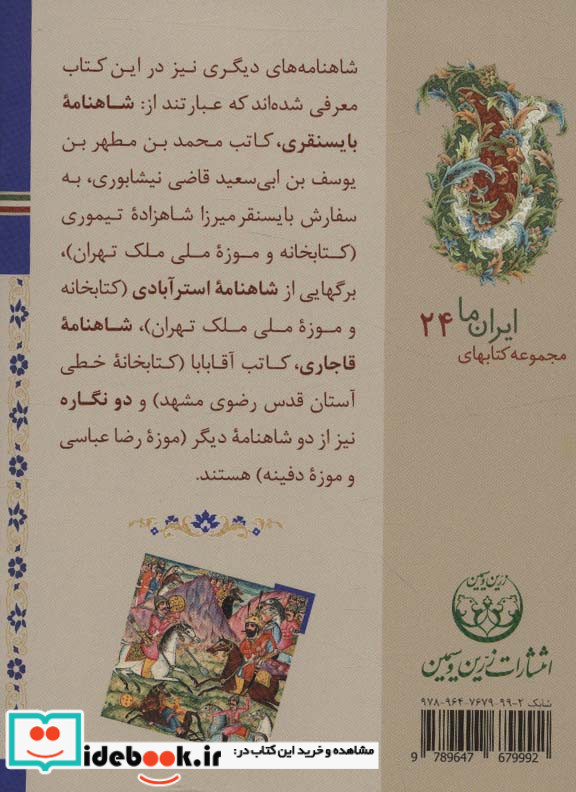 شاهنامه‌های دیگری نیز در این کتاب
معرفی شده‌اند که عبارتند از: شاهنامهٔ
بایسنقری، کاتب محمد بن مطهر بن
یوسف بن ابی‌سعید قاضی نیشابوری، به
سفارش بایسنقر میرزا شاهزادهٔ تیموری
(کتابخانه و موزهٔ ملی ملک تهران)،
برگهایی از شاهنامهٔ استرآبادی (کتابخانه
و موزهٔ ملی ملک تهران)، شاهنامهٔ
قاجاری، کاتب آقابابا (کتابخانهٔ خطی
آستان قدس رضوی مشهد) و دو نگاره
نیز از دو شاهنامهٔ دیگر (موزهٔ رضا عباسی
و موزهٔ دفینه) هستند.
ایران ما ۲۴
مجموعه کتابهای
زرین و سیمین
انتشارات زرین و سیمین
شابک ۲-۹۹-۷۶۷۹-۹۶۴-۹۷۸
9 789647 679992
مشاهده و خرید این کتاب در:
idebook.ir